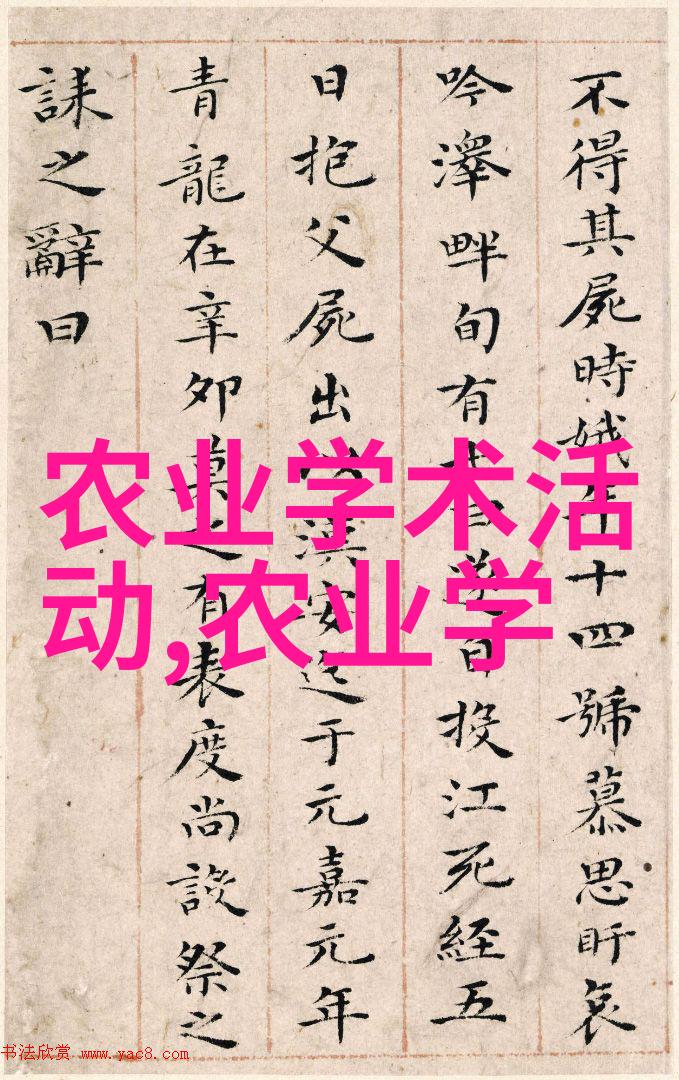 不得其屍時娥年十四號慕思盱哀
吟澤畔旬有七日遂自投江死經五
日抱父屍出以漢安迄于元嘉元年
青龍在辛夘莫之有表度尚設祭之
誄之辭曰
农业学术活
动,农业学
书法欣赏 www.yac8.com